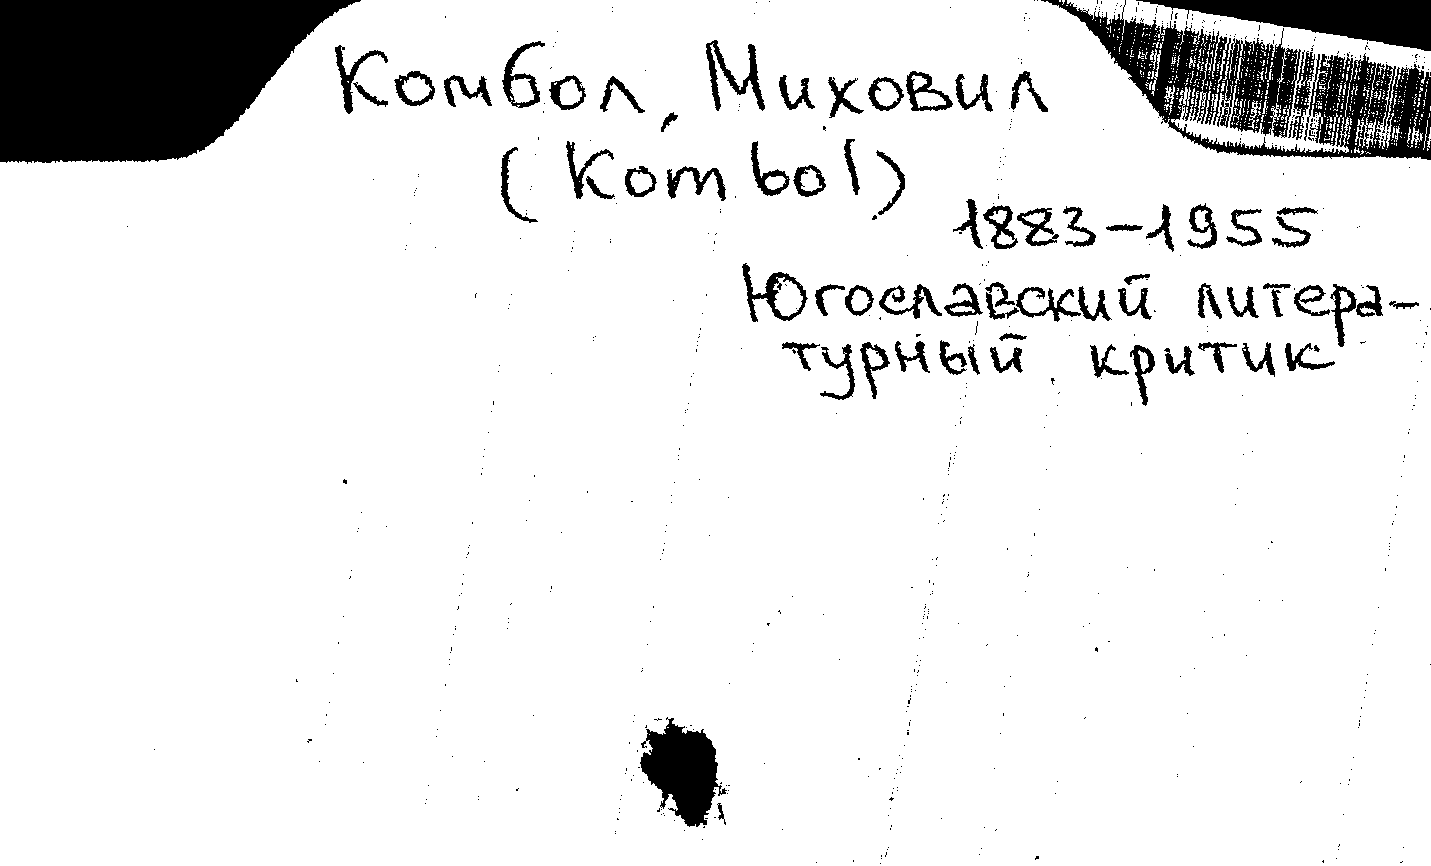 Комбол, Миховил
(Kombol)
1883-1955
Югославский литера-
турный критик